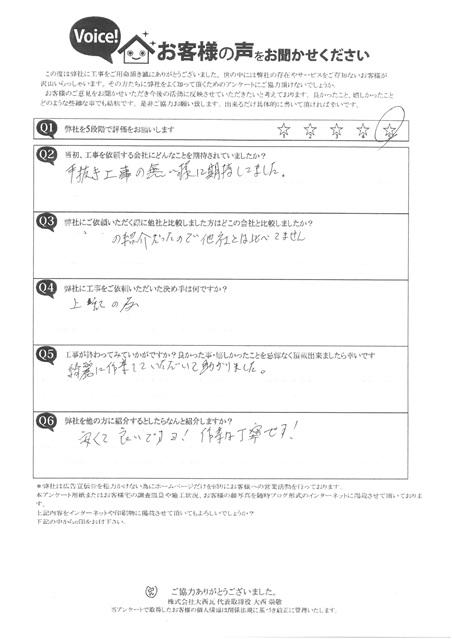 Voice!
お客様の声をお聞かせください
この度は弊社に工事をご用命頂き誠にありがとうございました。世の中には弊社の存在やサービスをご存知ないお客様が
沢山いらっしゃいます。その方たちに弊社をよく知って頂くためのアンケートにご協力頂けないでしょうか。
お客様のご意見をお聞かせいただき今後の活動に反映させていただきたいと考えております。良かったこと、嬉しかったこと
どのような些細な事でも結構です。是非ご協力お願い致します。出来るだけ具体的に書いて頂ければ幸いです。
Q1 弊社を5段階で評価をお願いします ☆ ☆ ☆ ☆ ☆
Q2 当初、工事を依頼する会社にどんなことを期待されていましたか?
手抜き工事の無い様に期待してました。
Q3 弊社にご依頼いただく際に他社と比較しました方はどこの会社と比較しましたか?
の紹介だったので他社とは比べてません
Q4 弊社に工事をご依頼いただいた決め手は何ですか?
上記の為
Q5 工事が終わってみていかがですか?良かった事・嬉しかったことを忌憚なく頂戴出来ましたら幸いです
綺麗に作業していただいて助かりました。
Q6 弊社を他の方に紹介するとしたらなんと紹介しますか?
安くて良いですよ! 作業は丁寧です!
*弊社は広告宣伝費を極力かけない為にホームページだけを頼りにお客様への営業活動を行っております。
本アンケート用紙またはお客様宅の調査風景や施工状況、お客様の顔写真を随時ブログ形式のインターネットに掲載させて頂いております。
上記内容をインターネットや印刷物に掲載させて頂いてもよろしいでしょうか?
下記の中から○印をお付け下さい。
ご協力ありがとうございました。
株式会社大西瓦 代表取締役 大西 崇敬
当アンケートで取得したお客様の個人情報は関係法規に基づき厳正に管理いたします。